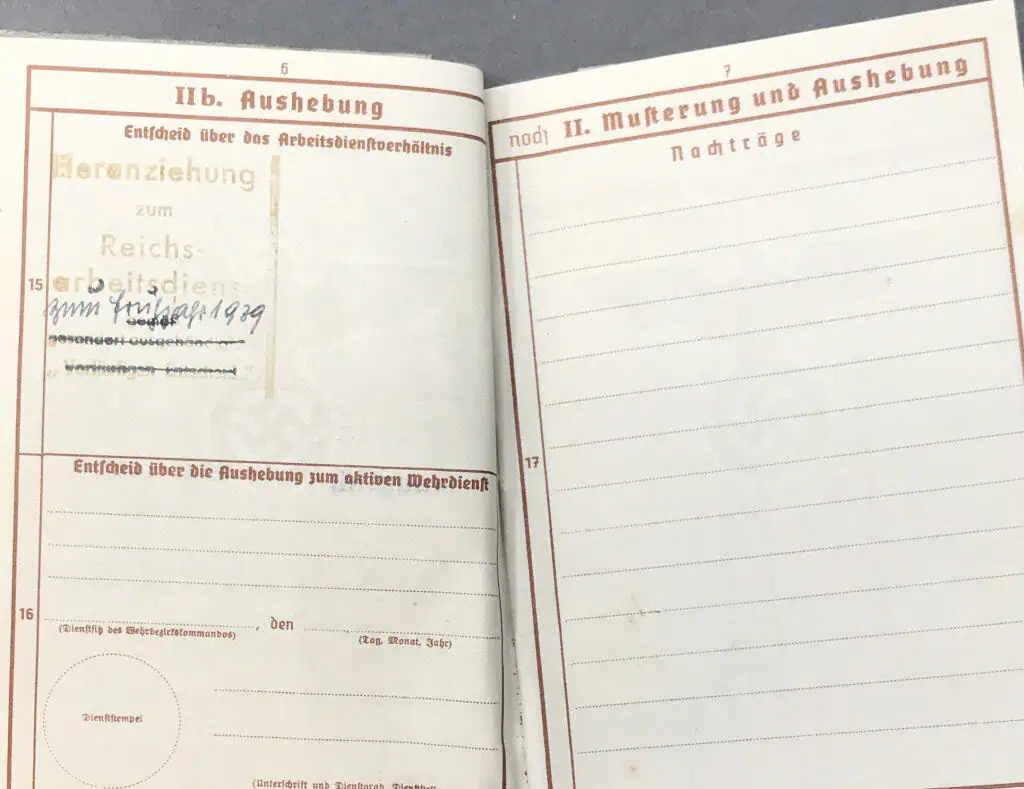 6
IIb. Aushebung
Entscheid über das Arbeitsdienstverhältnis
Heranziehung
zum
Reichs-
15
arbeitsdiens
zum Frühjahr 1939
gemäß
gesondert ausgehänd
"Vorläufigen Entscheid"
Entscheid über die Aushebung zum aktiven Wehrdienst
16
, den
(Dienstsitz des Wehrbezirkskommandos)
(Tag, Monat, Jahr)
Dienststempel
(Unterschrift und Dienstgrad, Dienststell
7
noch II. Musterung und Aushebung
Nachträge
17